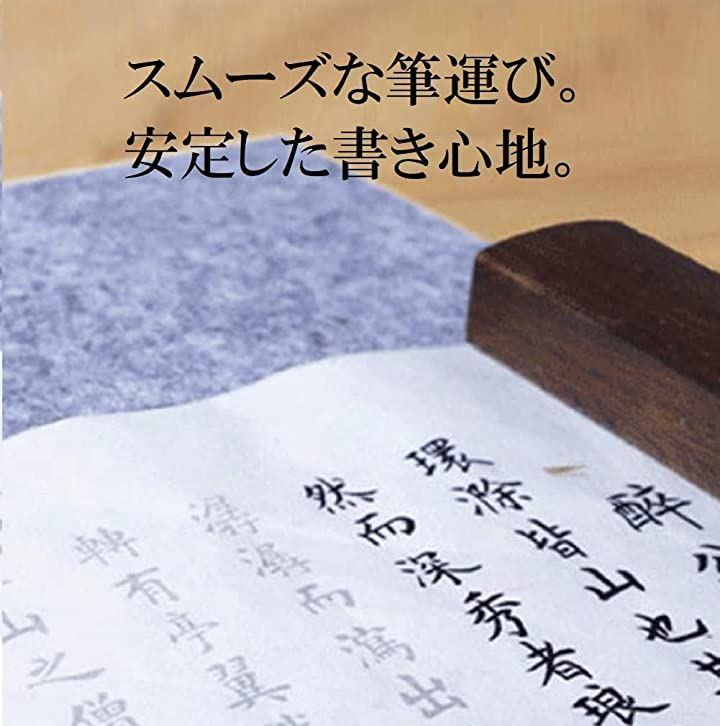 スムーズな筆運び。
安定した書き心地。
醉
環滁皆山也
然而深秀者琅
潺潺而瀉出
轉有亭翼
山之僧